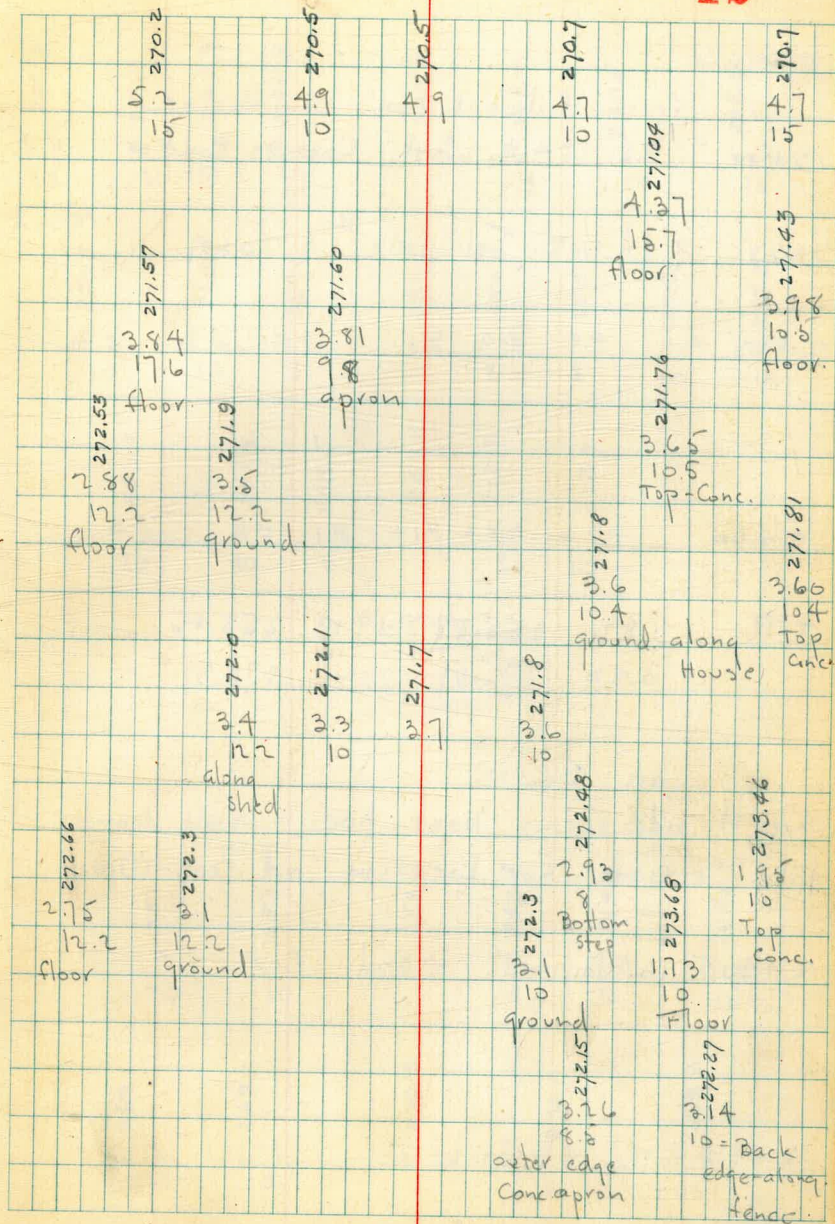 270.2
5.2
15
270.5
4.9
10
270.5
4.9
270.7
4.7
10
270.7
4.7
15
271.04
4.37
15.7
floor.
271.57
3.84
17.6
floor.
271.60
3.81
apron
271.43
3.98
10.5
floor.
272.53
2.88
12.2
floor
271.9
3.5
12.2
ground.
271.76
3.65
10.5
Top-Conc.
271.8
3.6
10.4
ground along
House
271.81
3.60
10.4
Top
Conc.
272.0
3.4
12.2
along
shed.
272.1
3.3
10
271.7
3.7
271.8
3.6
10
272.66
2.75
12.2
floor
272.3
3.1
12.2
ground
272.3
3.1
10
ground.
272.48
2.93
8
Bottom
step
273.68
1.73
10
Floor
273.46
1.95
10
Top
Conc.
272.15
3.26
outer edge
Conc. apron
272.27
3.14
10 = Back
edge-along.
fence.